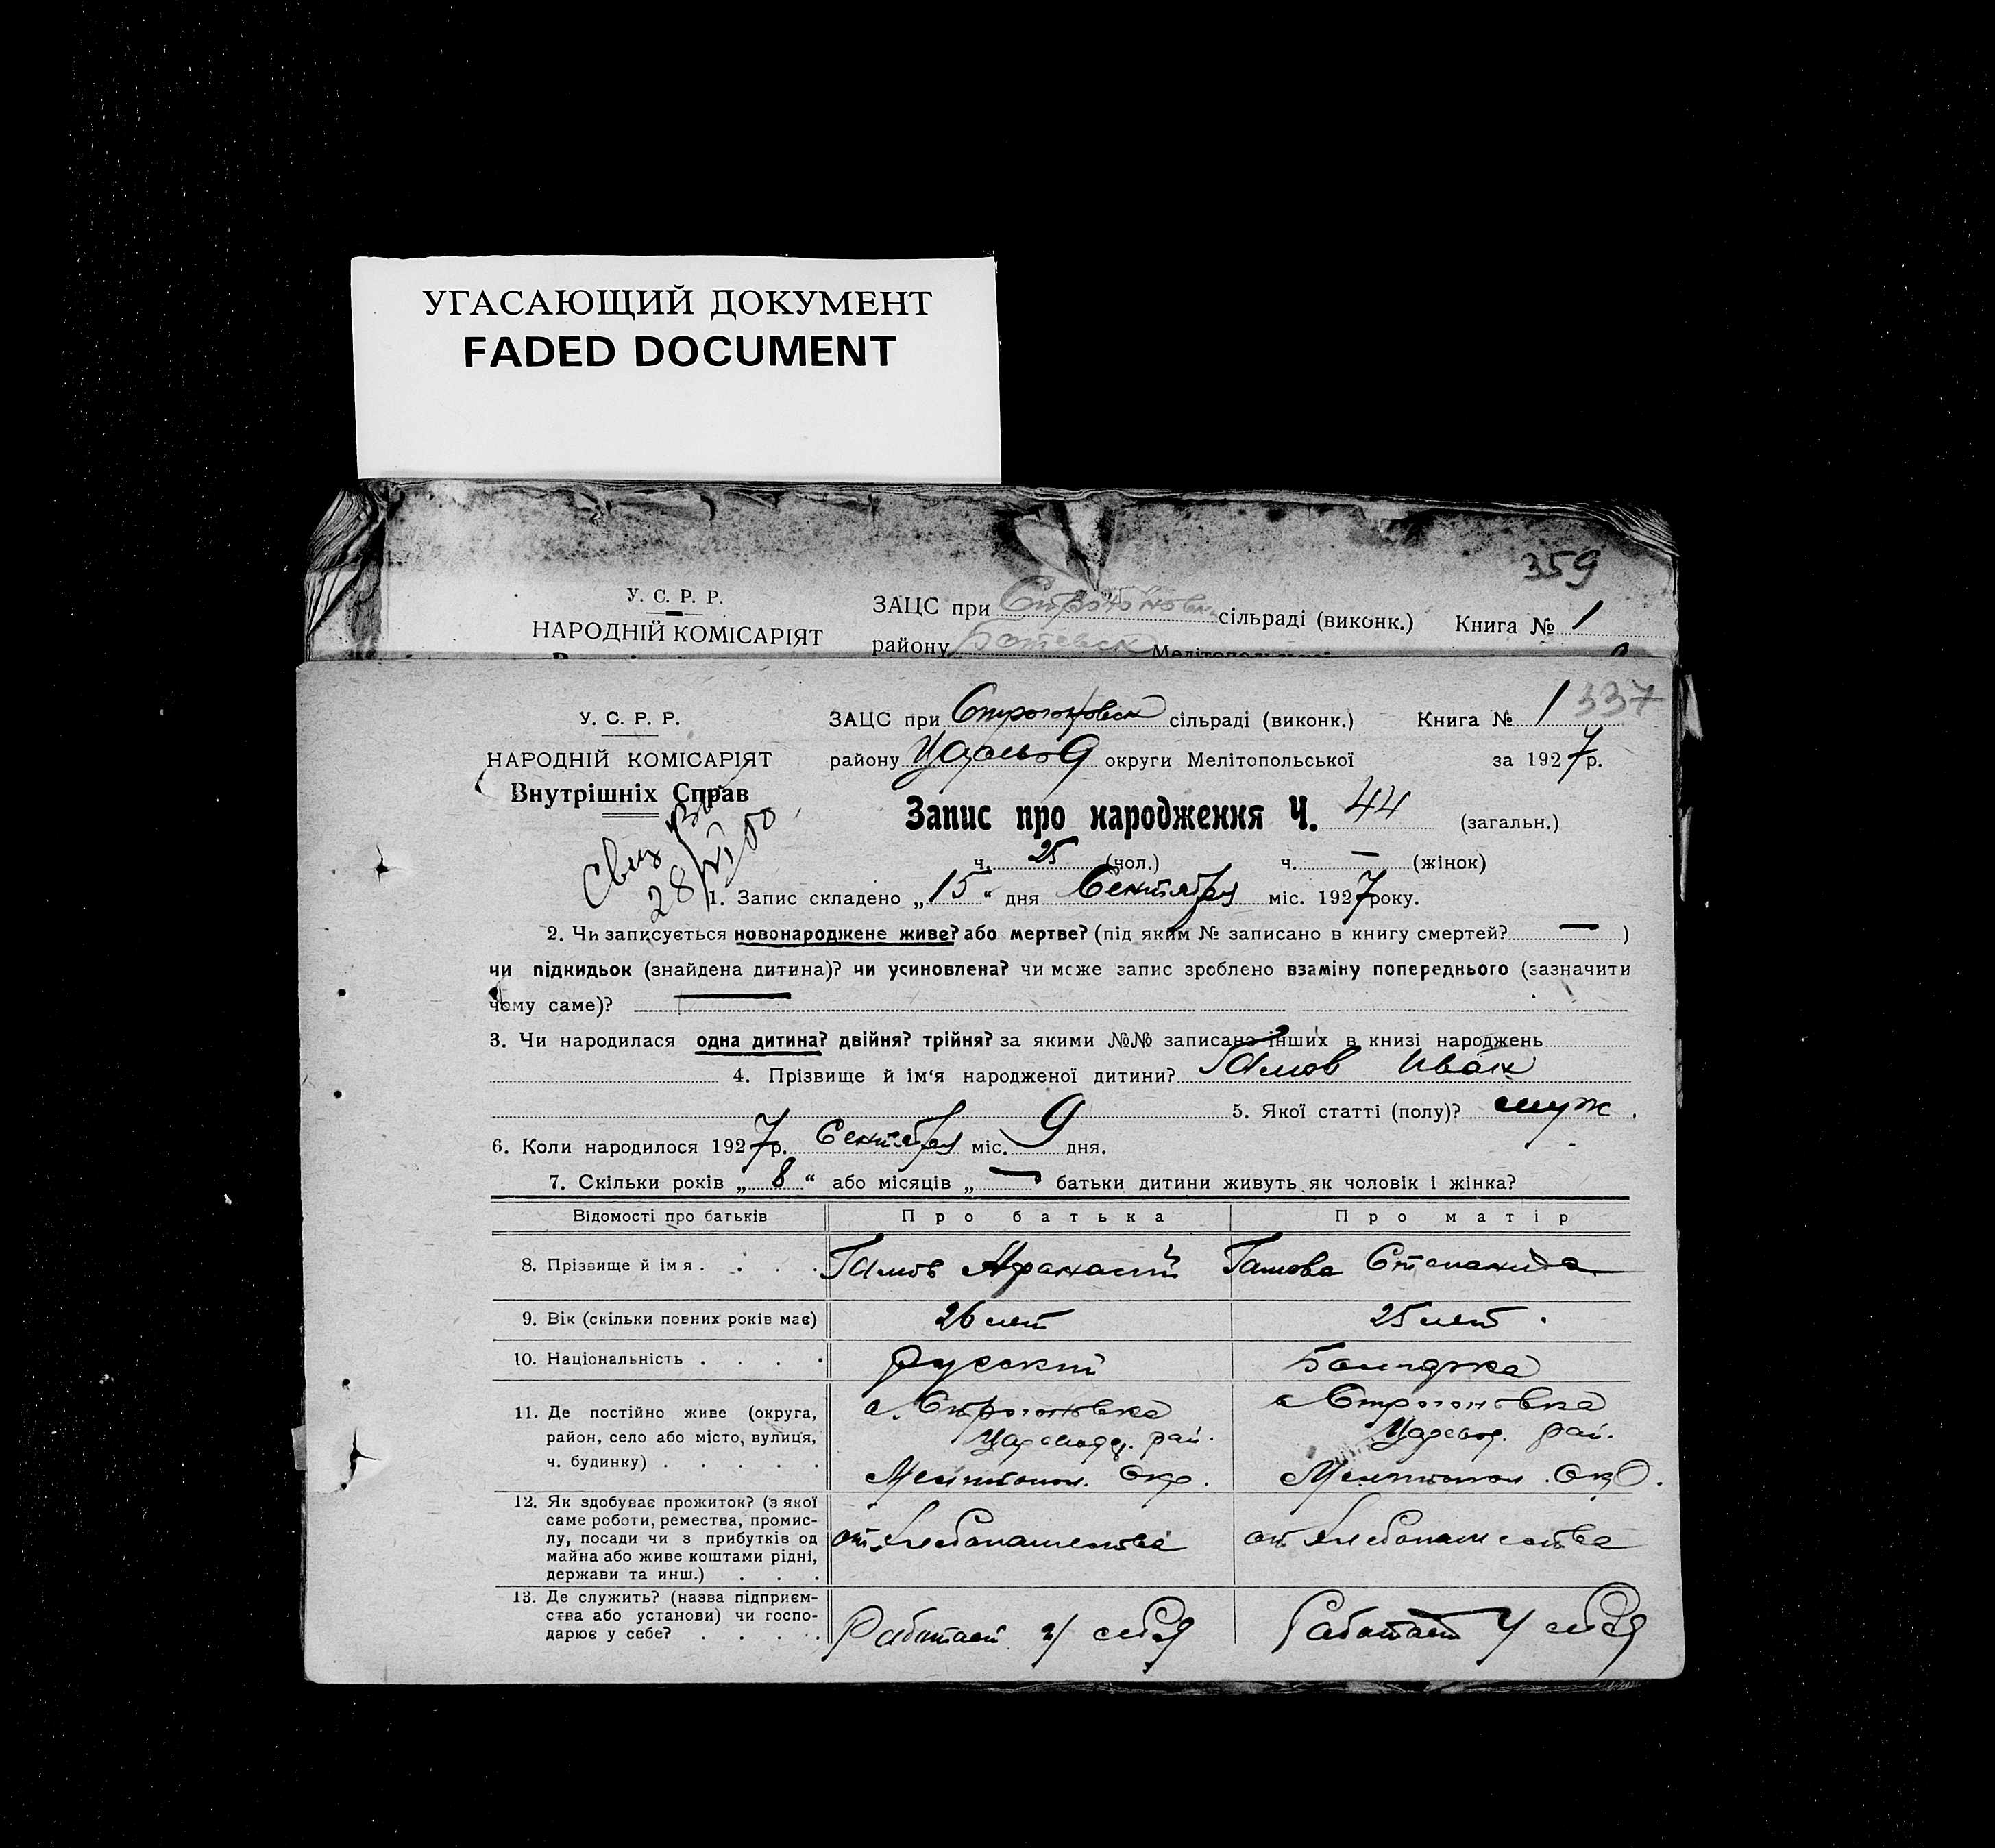 УГАСАЮЩИЙ ДОКУМЕНТ
FADED DOCUMENT
359
У. С. Р. Р.
НАРОДНІЙ КОМІСАРІЯТ
ЗАЦС при Строгоновск сільраді (виконк.) Книга № 1
району Ботевск Мелітопольської
337
У. С. Р. Р.
НАРОДНІЙ КОМІСАРІЯТ
Внутрішніх Справ
ЗАЦС при Строгоновск сільраді (виконк.) Книга № 1
району округи Мелітопольської за 1927 р.
Запис про народження Ч. 44 (загальн.)
ч. 25 (чол.) ч. — (жінок)
28/
1. Запис складено „15“ дня Сентября міс. 1927 року.
2. Чи записується новонароджене живе? або мертве? (під яким № записано в книгу смертей? — )
чи підкидьок (знайдена дитина)? чи усиновлена? чи може запис зроблено взаміну попереднього (зазначити
чому саме)? —
3. Чи народилася одна дитина? двійня? трійня? за якими №№ записано інших в книзі народжень
4. Прізвище й ім'я народженої дитини? Гамов Иван
5. Якої статті (полу)? муж.
6. Коли народилося 1927 р. Сентября міс. 9 дня.
7. Скільки років „ 8 “ або місяців „ — " батьки дитини живуть як чоловік і жінка?
Відомості про батьків Про батька Про матір
8. Прізвище й імя . . . . Гамов Афанасий Гамова Степанида
9. Вік (скільки повних років має) 26 лет 25 лет.
10. Національність . . . . русский Болгарка
11. Де постійно живе (округа,
район, село або місто, вулиця,
ч. будинку) . . . . .
с. Строгоновка
рай.
Мелитопол. Окр.
с Строгоновка
рай.
Мелитопол. Окр.
12. Як здобуває прожиток? (з якої
саме роботи, ремества, промис-
лу, посади чи з прибутків од
майна або живе коштами рідні,
держави та инш.) . . .
от хлебопашества
от хлебопашества
13. Де служить? (назва підприєм-
ства або установи) чи госпо-
дарює у себе? . . . .
Работает у себя
Работает у себя